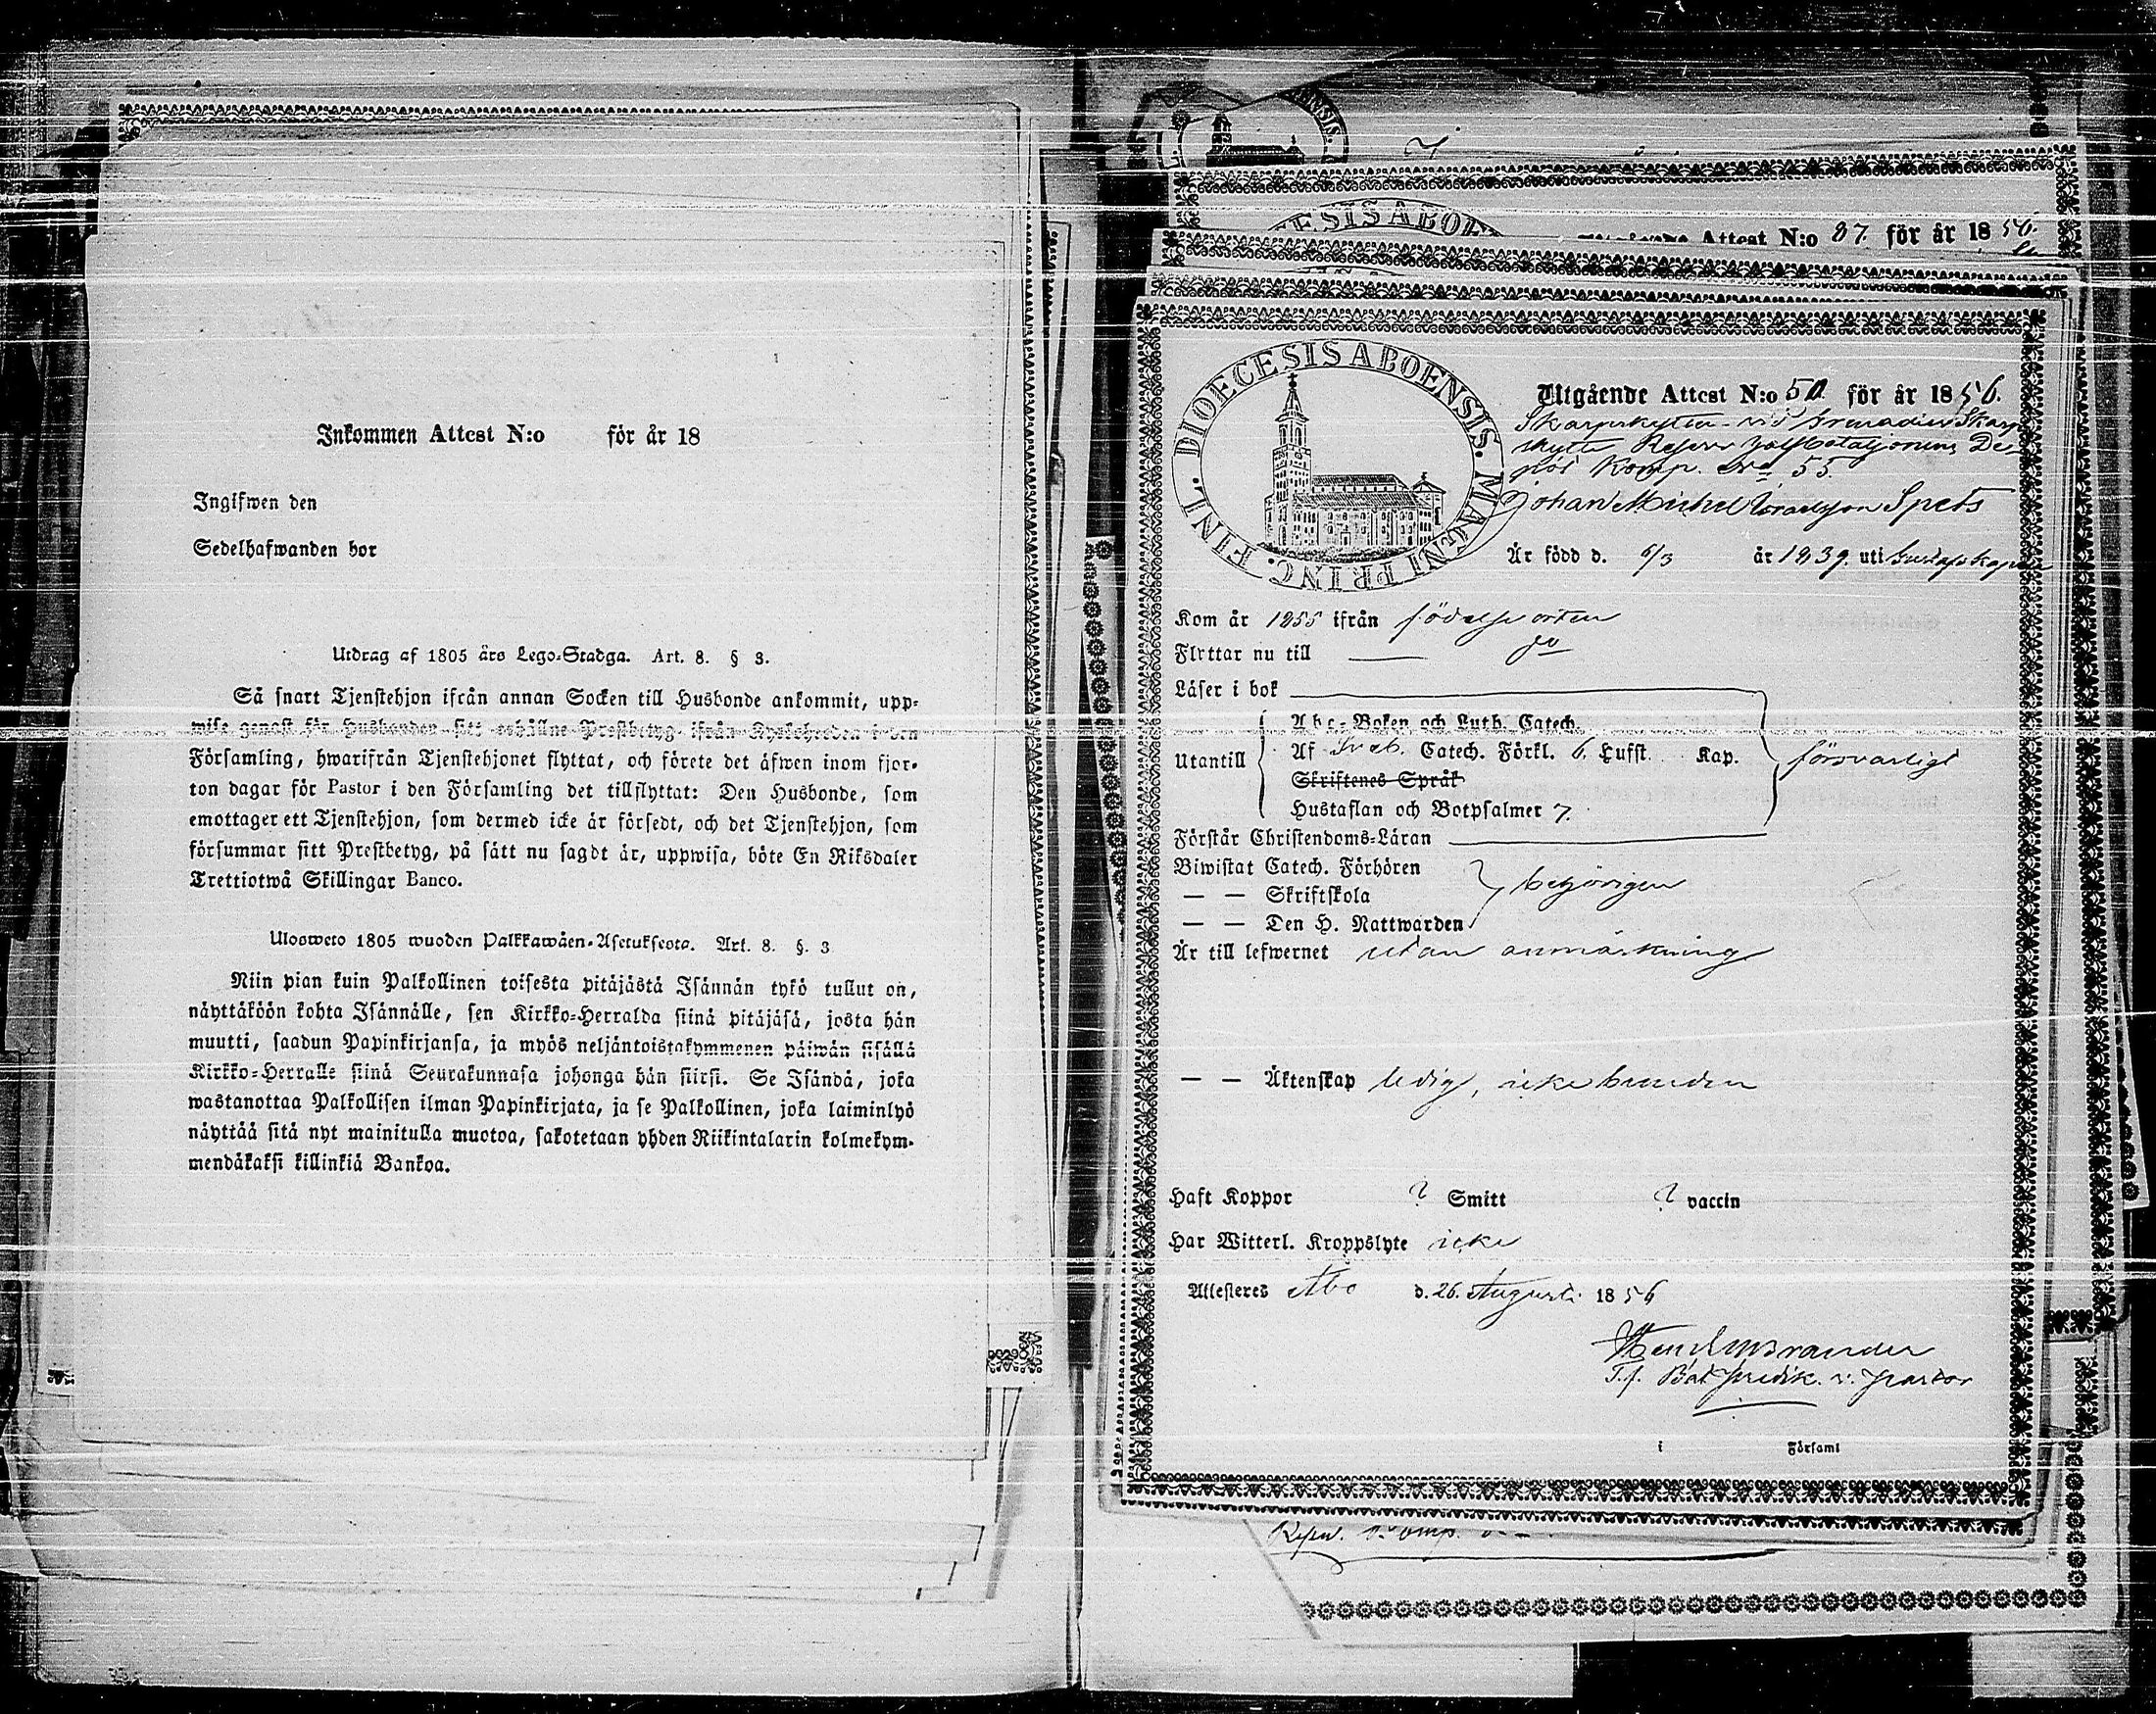 Inkommen Attest N:o för år 18
Ingifwen den
Sedelhafwanden bor
Utdrag af 1805 års Lego-Stadga. Art. 8. § 3.
Så snart Tjenstehjon ifrån annan Socken till Husbonde ankommit, upp-
wise genast för Husbonden sitt erhållne Prestbetyg ifrån Kyrkoherden i den
Församling, hwarifrån Tjenstehjonet flyttat, och förete det äfwen inom fjor-
ton dagar för Pastor i den Församling det tillflyttat: Den Husbonde, som
emottager ett Tjenstehjon, som dermed icke är försedt, och det Tjenstehjon, som
försummar sitt Prestbetyg, på sätt nu sagdt är, uppwisa, böte En Riksdaler
Trettiotwå Skillingar Banco.
Uloswето 1805 wuoden Palkkawäen-Asetuksesta. Art. 8. §. 3
Niin pian kuin Palkollinen toisesta pitäjästä Isännän tykö tullut on,
näyttäköön kohta Isännälle, sen Kirkko-Herralda siinä pitäjäsä, josta hän
muutti, saadun Papinkirjansa, ja myös neljäntoistakymmenen päiwän sisällä
Kirkko-Herralle siinä Seurakunnasa johonga hän siirsi. Se Isändä, joka
wastanottaa Palkollisen ilman Papinkirjata, ja se Palkollinen, joka laiminlyö
näyttää sitä nyt mainitulla muotoa, sakotetaan yhden Riikintalarin kolmekym-
mendäkaksi killinkiä Bankoa.
ESIS ABOE
Attest N:o 87. för år 1856.
DIOECESIS ABOENSIS. MAGNI PRINC. FINL.
Utgående Attest N:o 50 för år 1856.
Skarpskytten vid Grenadier Skarp
skytte Reserv Bataljonens De-
pôt Komp. N:o 55.
Johan Michel Israelsson Spets
Är född d. 6/3 år 1839. uti Gustafs kapell
Kom år 1855 ifrån födelseorten
Flyttar nu till — do
Läser i bok
Abc-Boken och Luth. Catech.
Utantill Af Sveb. Catech. Förkl. 6. Lufft. Kap. försvarligt
Skriftenes Språk
Hustaflan och Botpsalmer 7.
Förstår Christendoms-Läran
Biwistat Catech. Förhören
— — Skriftskola behörigen
— — Den H. Nattwarden
Är till lefwernet utan anmärkning
— — Äktenskap ledig, icke bunden
Haft Koppor ? Smitt ? vaccin
Har Witterl. Kroppslyte icke
Attesteres Åbo d. 26. Augusti 1856
Brander
T.f. Bat. predik. v. Pastor
i Församl
Komp.